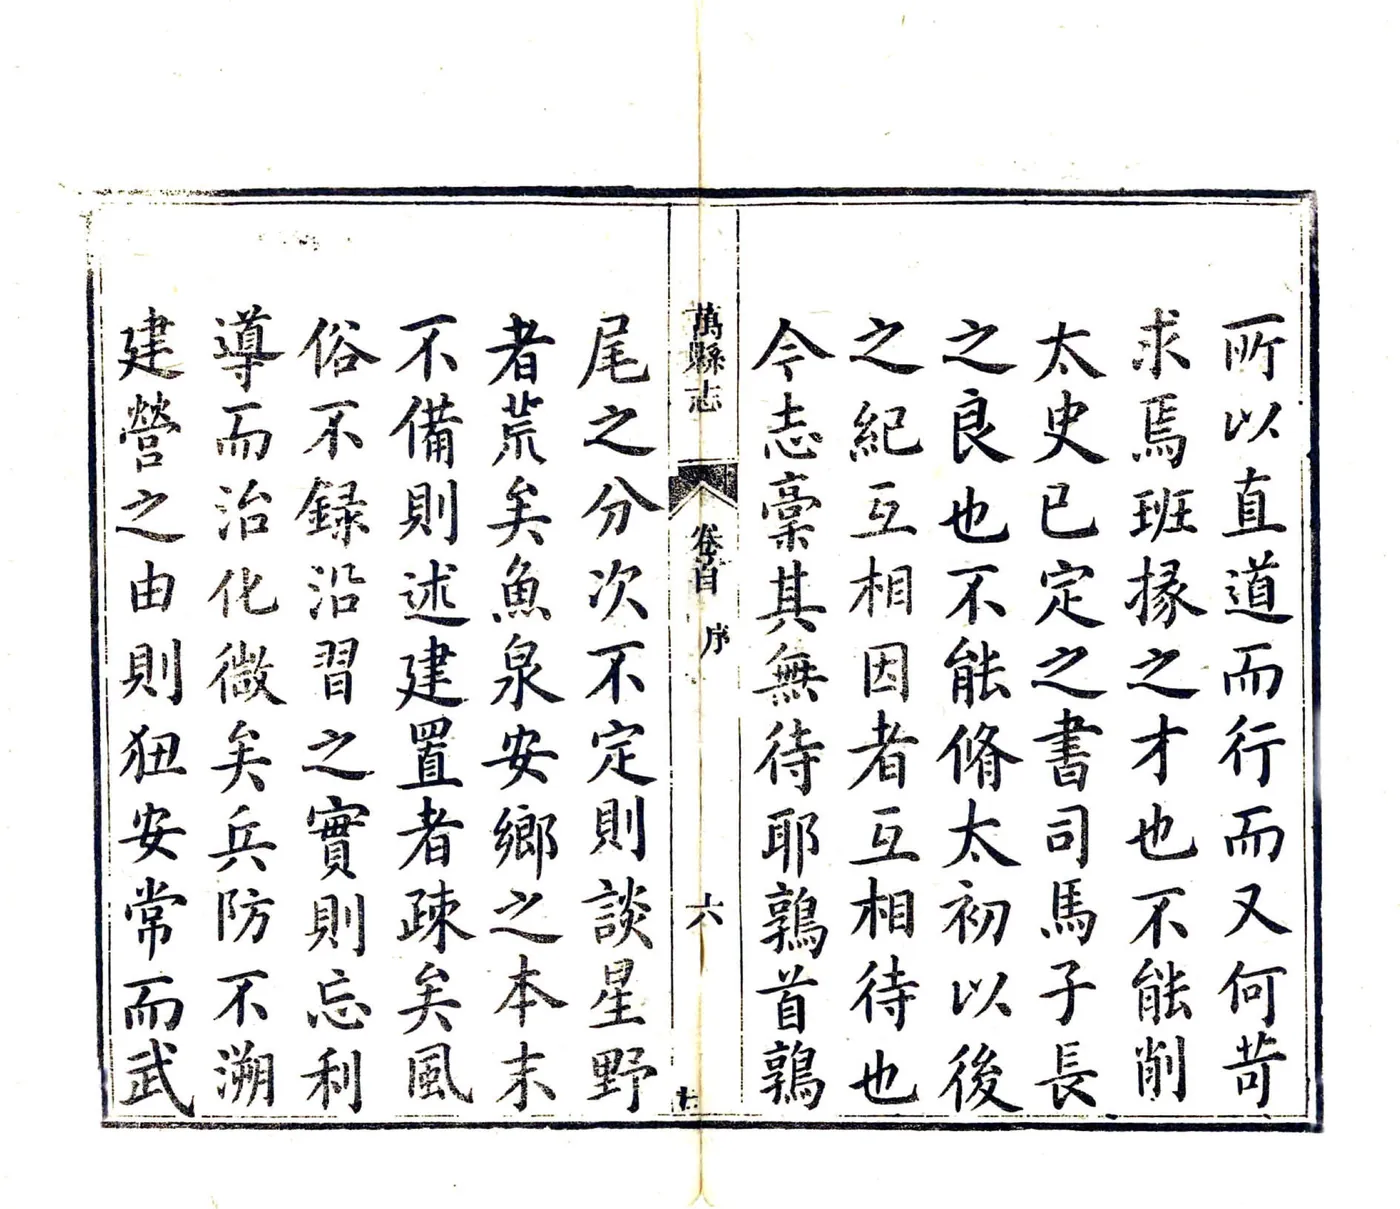 所以直道而行而又何苛
求焉班掾之才也不能削
太史已定之書司馬子長
之良也不能脩太初以後
之紀互相因者互相待也
今志稾其無待耶鶉首鶉
萬縣志
卷首
序
六
尾之分次不定則談星野
者荒矣魚泉安鄉之本末
不備則述建置者疎矣風
俗不録沿習之實則忘利
導而治化微矣兵防不溯
建營之由則狃安常而武